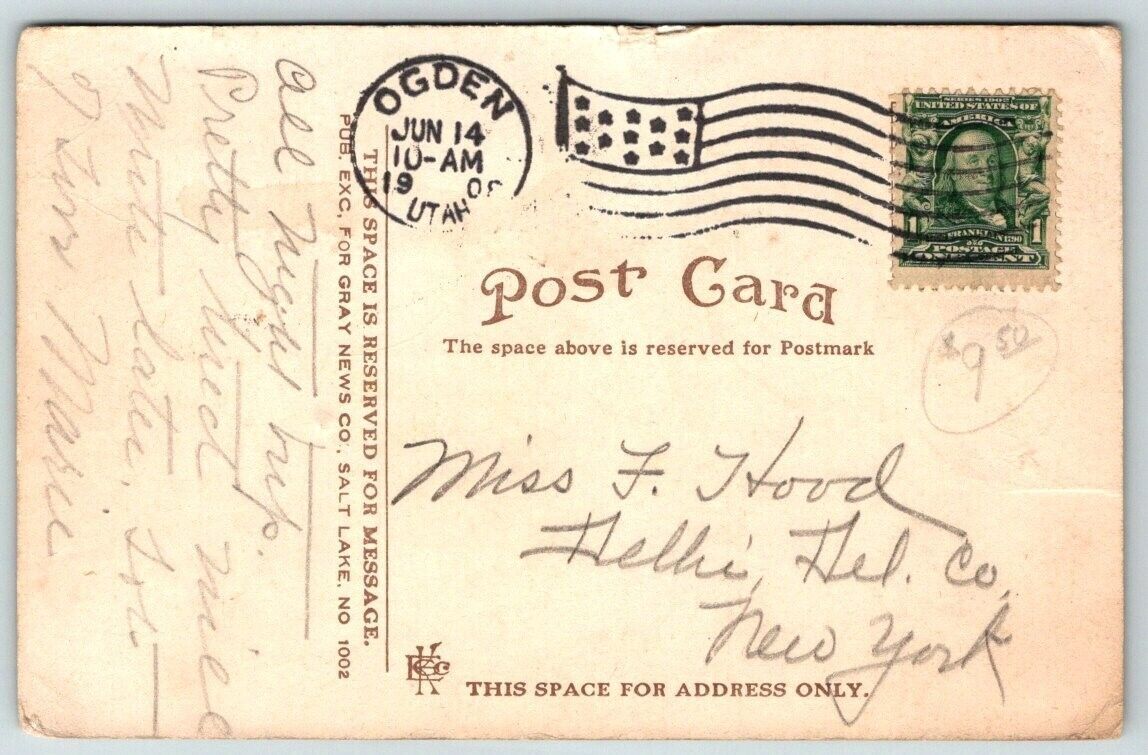 OGDEN
JUN 14
10-AM
19 08
UTAH
SERIES 1902
UNITED STATES OF
AMERICA
FRANKLIN 1790
1 1
POSTAGE
ONE CENT
Post Card
The space above is reserved for Postmark
$9 50
Miss F. Hood
Delhi, Del. Co.
New York
THIS SPACE FOR ADDRESS ONLY.
THIS SPACE IS RESERVED FOR MESSAGE.
PUB. EXC, FOR GRAY NEWS CO., SALT LAKE. NO 1002
all night trip.
Pretty tired
Write later.
Marie